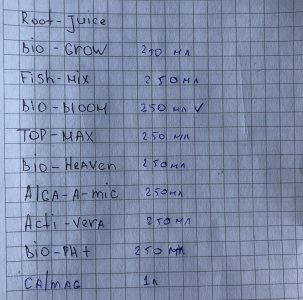 Root-Juice
Bio-Grow 250 мл
Fish-Mix 250мл
Bio-Bloom 250 мл ✓
TOP-MAX 250 мл
Bio-Heaven 250мл
Alga-A-mic 250мл
Acti-verA 250мл
Bio-PH+ 250 мл
CA/MAG 1л